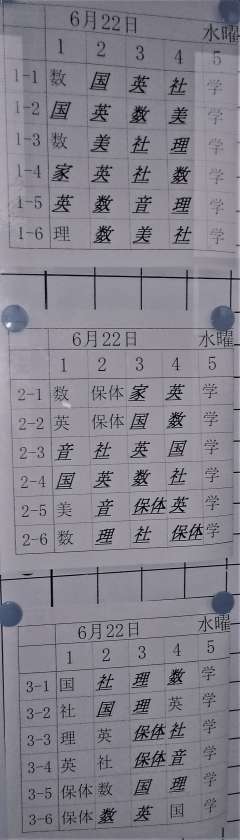 6月22日 水曜
1 2 3 4 5
1-1 数 国 英 社 学
1-2 国 英 数 美 学
1-3 数 美 社 理 学
1-4 家 英 社 数 学
1-5 英 数 音 理 学
1-6 理 数 美 社 学
6月22日 水曜
1 2 3 4 5
2-1 数 保体 家 英 学
2-2 英 保体 国 数 学
2-3 音 社 英 国 学
2-4 国 英 数 社 学
2-5 美 音 保体 英 学
2-6 数 理 社 保体 学
6月22日 水曜
1 2 3 4 5
3-1 国 社 理 数 学
3-2 社 国 理 英 学
3-3 理 英 保体 社 学
3-4 英 社 保体 音 学
3-5 保体 数 国 理 学
3-6 保体 数 英 国 学